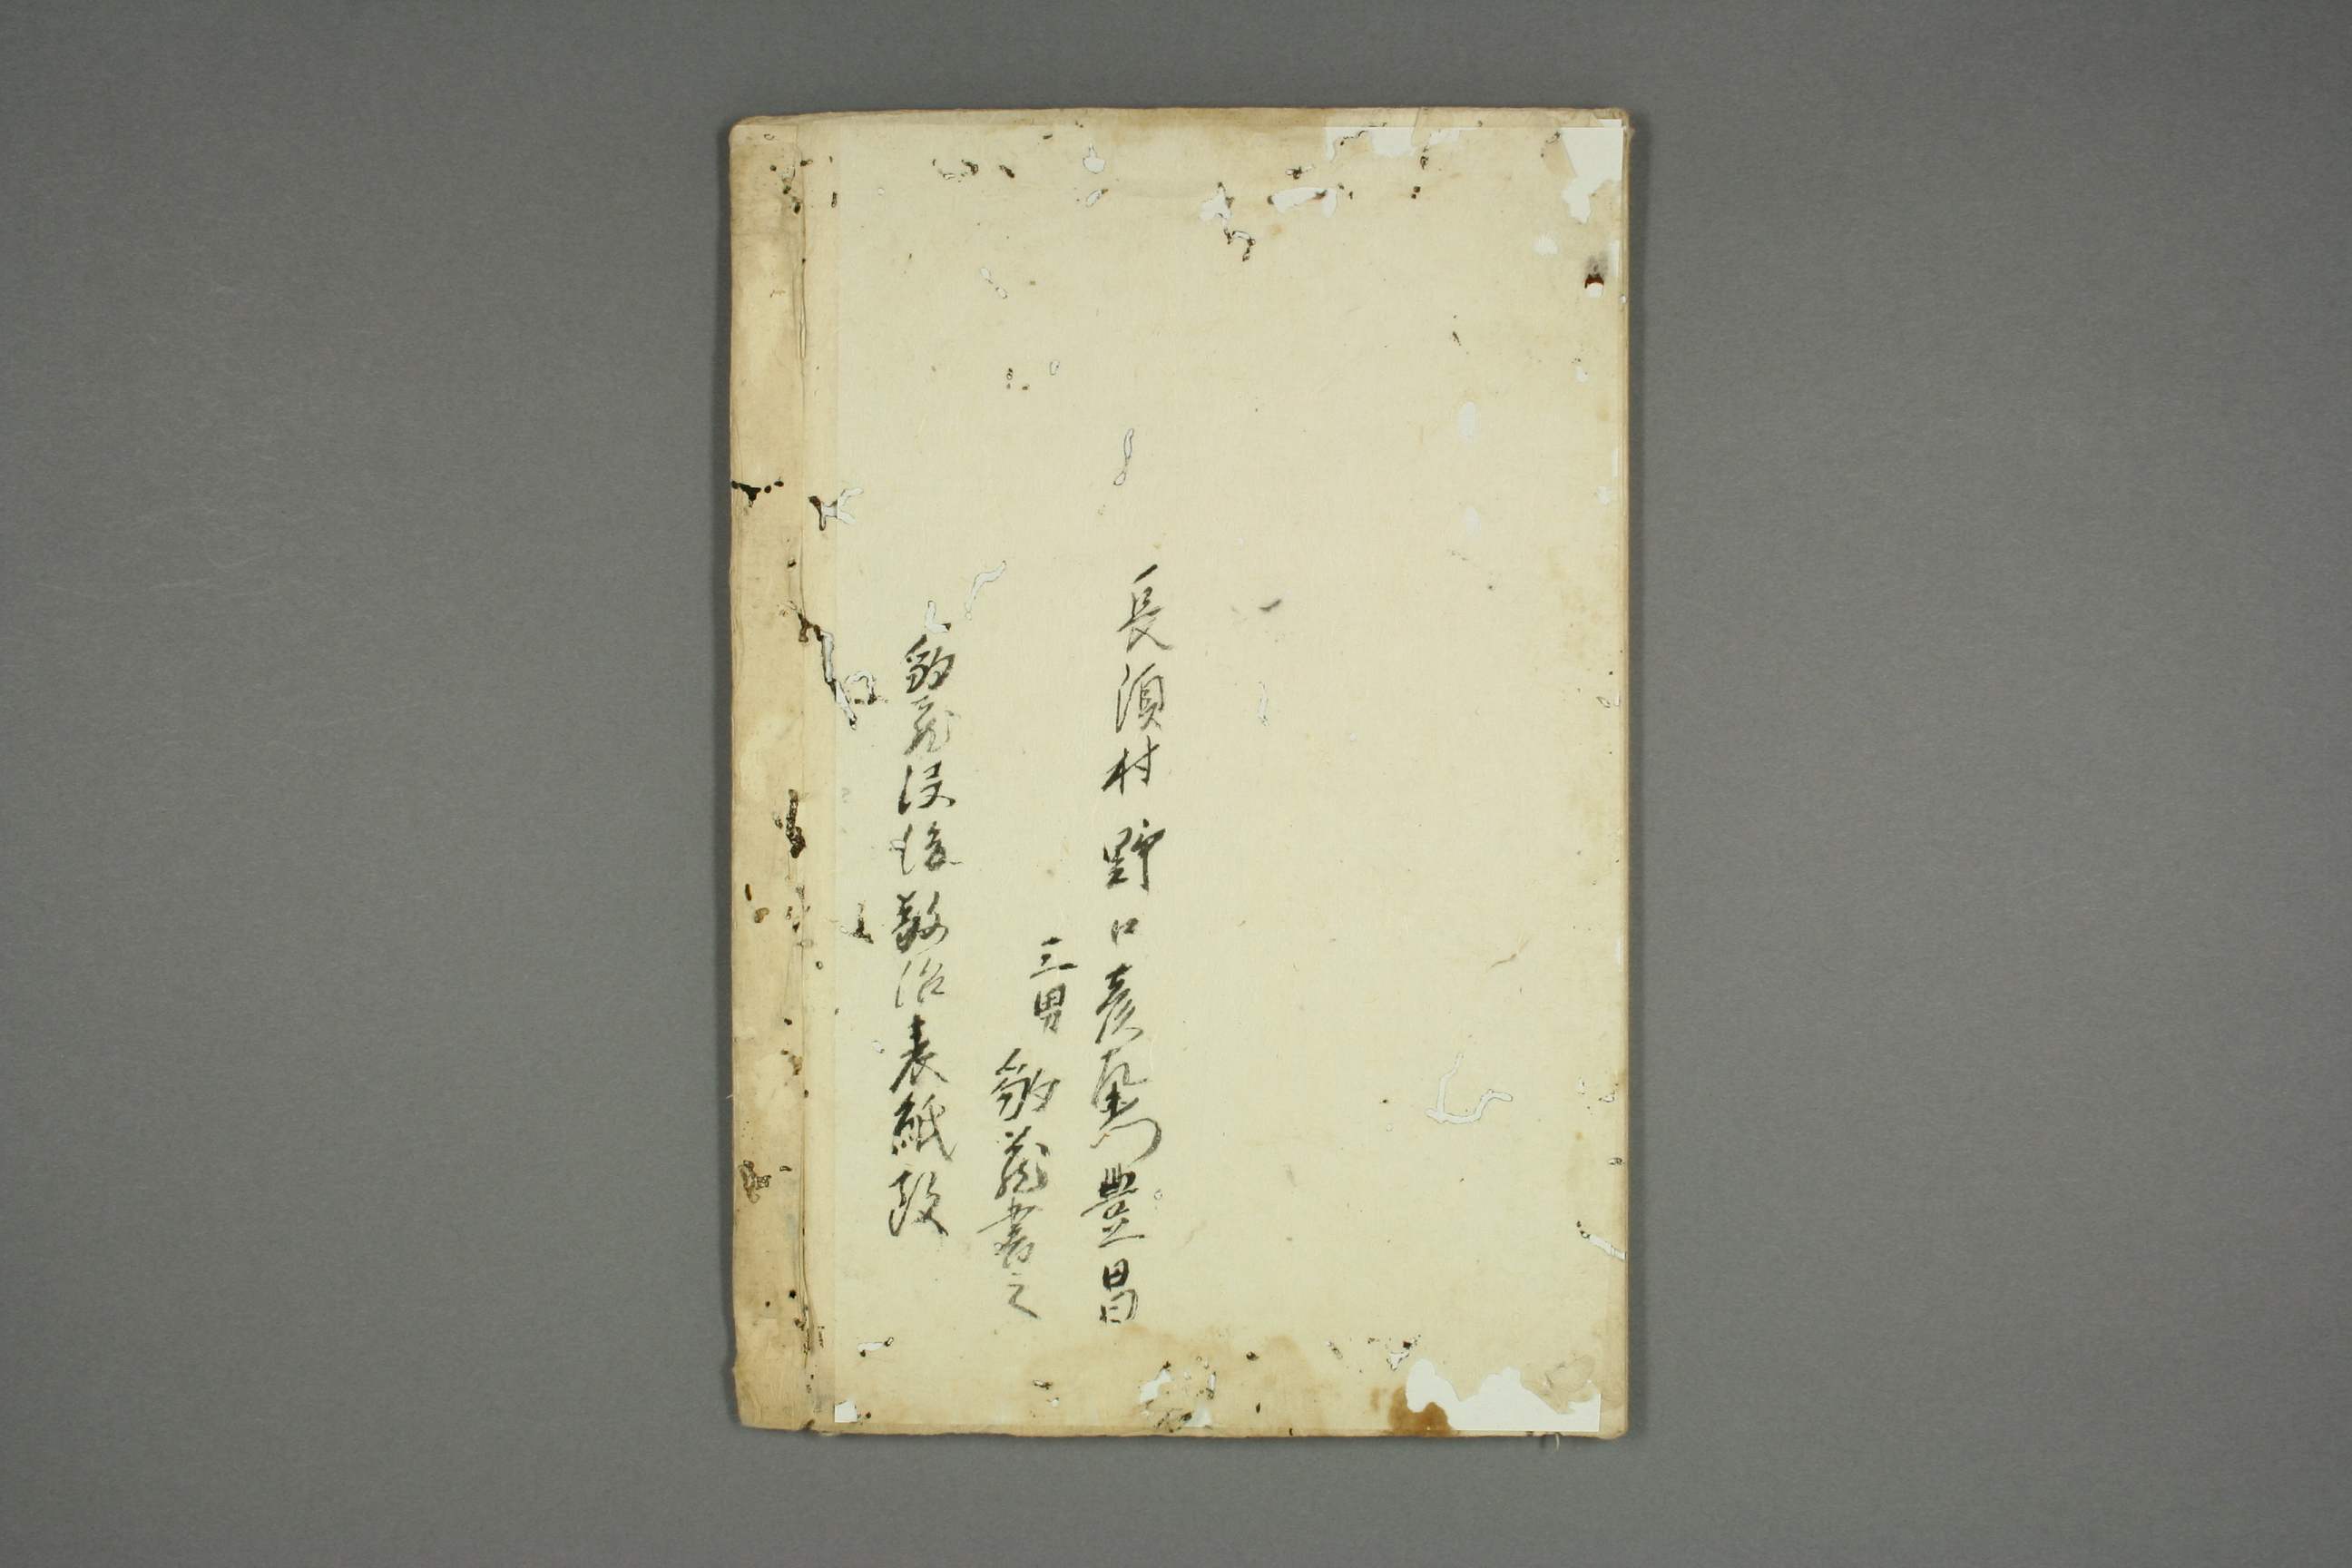 長須村野口彦兵衛豊昌
三男 敬蔵書之
敬蔵没後敬治表紙改